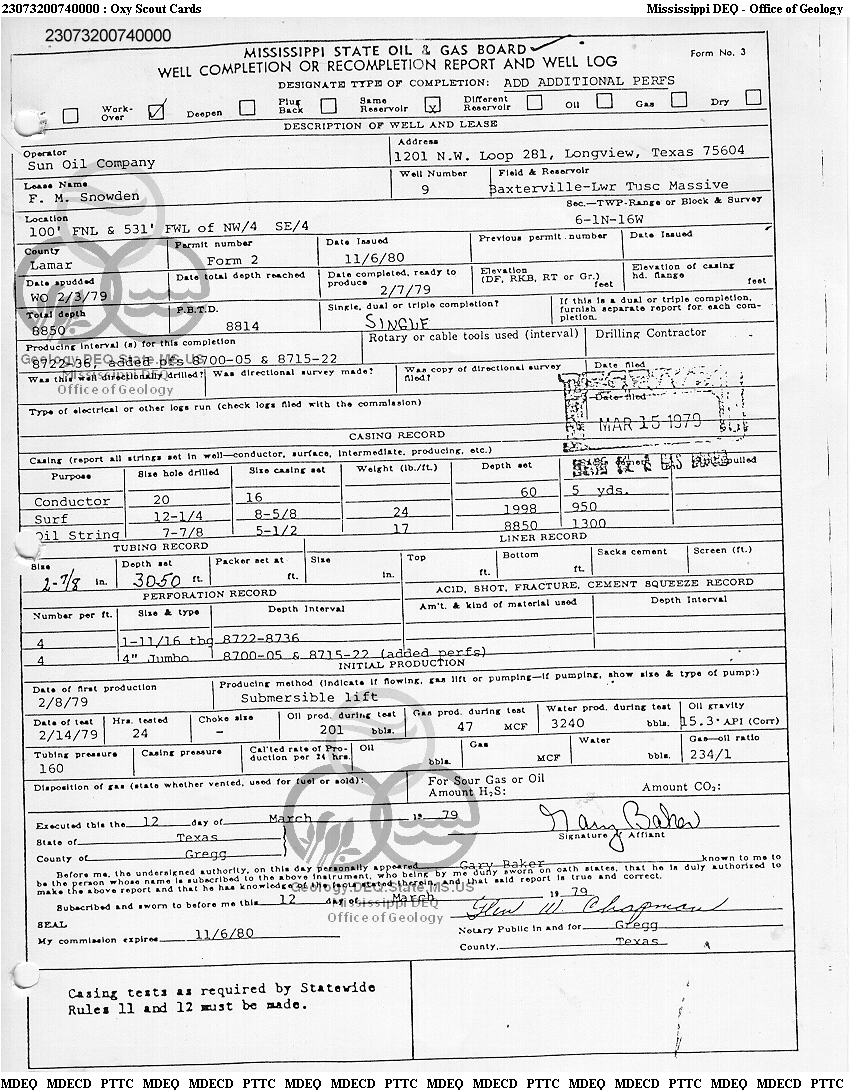 23073200740000 : Oxy Scout Cards Mississippi DEQ - Office of Geology
23073200740000
MISSISSIPPI STATE OIL & GAS BOARD
Form No. 3
WELL COMPLETION OR RECOMPLETION REPORT AND WELL LOG
DESIGNATE TYPE OF COMPLETION: ADD ADDITIONAL PERFS
Work-Over Deepen Plug Back Same Reservoir X Different Reservoir Oil Gas Dry
DESCRIPTION OF WELL AND LEASE
Operator Address
Sun Oil Company 1201 N.W. Loop 281, Longview, Texas 75604
Lease Name Well Number Field & Reservoir
F. M. Snowden 9 Baxterville-Lwr Tusc Massive
Location Sec.—TWP-Range or Block & Survey
100' FNL & 531' FWL of NW/4 SE/4 6-1N-16W
County Permit number Date Issued Previous permit number Date Issued
Lamar Form 2 11/6/80
Date spudded Date total depth reached Date completed, ready to produce Elevation (DF, RKB, RT or Gr.) feet Elevation of casing hd. flange feet
WO 2/3/79 2/7/79
Total depth P.B.T.D. Single, dual or triple completion? If this is a dual or triple completion, furnish separate report for each completion.
8850 8814 SINGLE
Producing interval (s) for this completion Rotary or cable tools used (interval) Drilling Contractor
8722-36, added pfs 8700-05 & 8715-22
Geology.DEQ.State.MS.US
Mississippi DEQ
Office of Geology
Was this well directionally drilled? Was directional survey made? Was copy of directional survey filed? Date filed
Type of electrical or other logs run (check logs filed with the commission) Date filed
MAR 15 1979
CASING RECORD
Casing (report all strings set in well—conductor, surface, intermediate, producing, etc.)
Purpose Size hole drilled Size casing set Weight (lb./ft.) Depth set pulled
Conductor 20 16 60 5 yds.
Surf 12-1/4 8-5/8 24 1998 950
Oil String 7-7/8 5-1/2 17 8850 1300
TUBING RECORD LINER RECORD
Size Depth set Packer set at Size Top Bottom Sacks cement Screen (ft.)
2-7/8 in. 3050 ft. ft. in. ft. ft.
PERFORATION RECORD ACID, SHOT, FRACTURE, CEMENT SQUEEZE RECORD
Number per ft. Size & type Depth Interval Am't. & kind of material used Depth Interval
4 1-11/16 tbg 8722-8736
4 4" Jumbo 8700-05 & 8715-22 (added perfs)
INITIAL PRODUCTION
Date of first production Producing method (indicate if flowing, gas lift or pumping—if pumping, show size & type of pump:)
2/8/79 Submersible lift
Date of test Hrs. tested Choke size Oil prod. during test Gas prod. during test Water prod. during test Oil gravity
2/14/79 24 - 201 bbls. 47 MCF 3240 bbls. 15.3° API (Corr)
Tubing pressure Casing pressure Cal'ted rate of Production per 24 hrs. Oil bbls. Gas MCF Water bbls. Gas—oil ratio
160 234/1
Disposition of gas (state whether vented, used for fuel or sold): For Sour Gas or Oil Amount H₂S: Amount CO₂:
Executed this the 12 day of March 19 79 Gary Baker
State of Texas Signature of Affiant
County of Gregg
Before me, the undersigned authority, on this day personally appeared Gary Baker known to me to
be the person whose name is subscribed to the above instrument, who being by me duly sworn on oath states, that he is duly authorized to
make the above report and that he has knowledge of the facts stated therein, and that said report is true and correct.
Geology.DEQ.State.MS.US
Mississippi DEQ
Office of Geology
Subscribed and sworn to before me this 12 day of March 19 79
SEAL
My commission expires 11/6/80 Notary Public in and for Gregg
County, Texas
Casing tests as required by Statewide
Rules 11 and 12 must be made.
MDEQ MDECD PTTC MDEQ MDECD PTTC MDEQ MDECD PTTC MDEQ MDECD PTTC MDEQ MDECD PTTC MDEQ MDECD PTTC